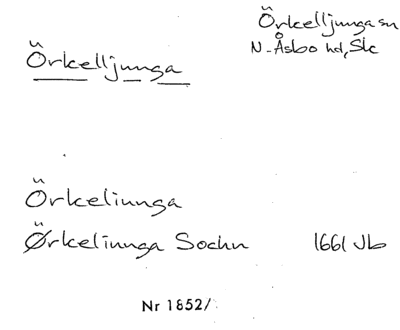 Örkelljunga sn
N. Åsbo hd, Sk
Örkelljunga
Örkeliunga
Ørkeliunga Sochn 1661 Jb
Nr 1852/